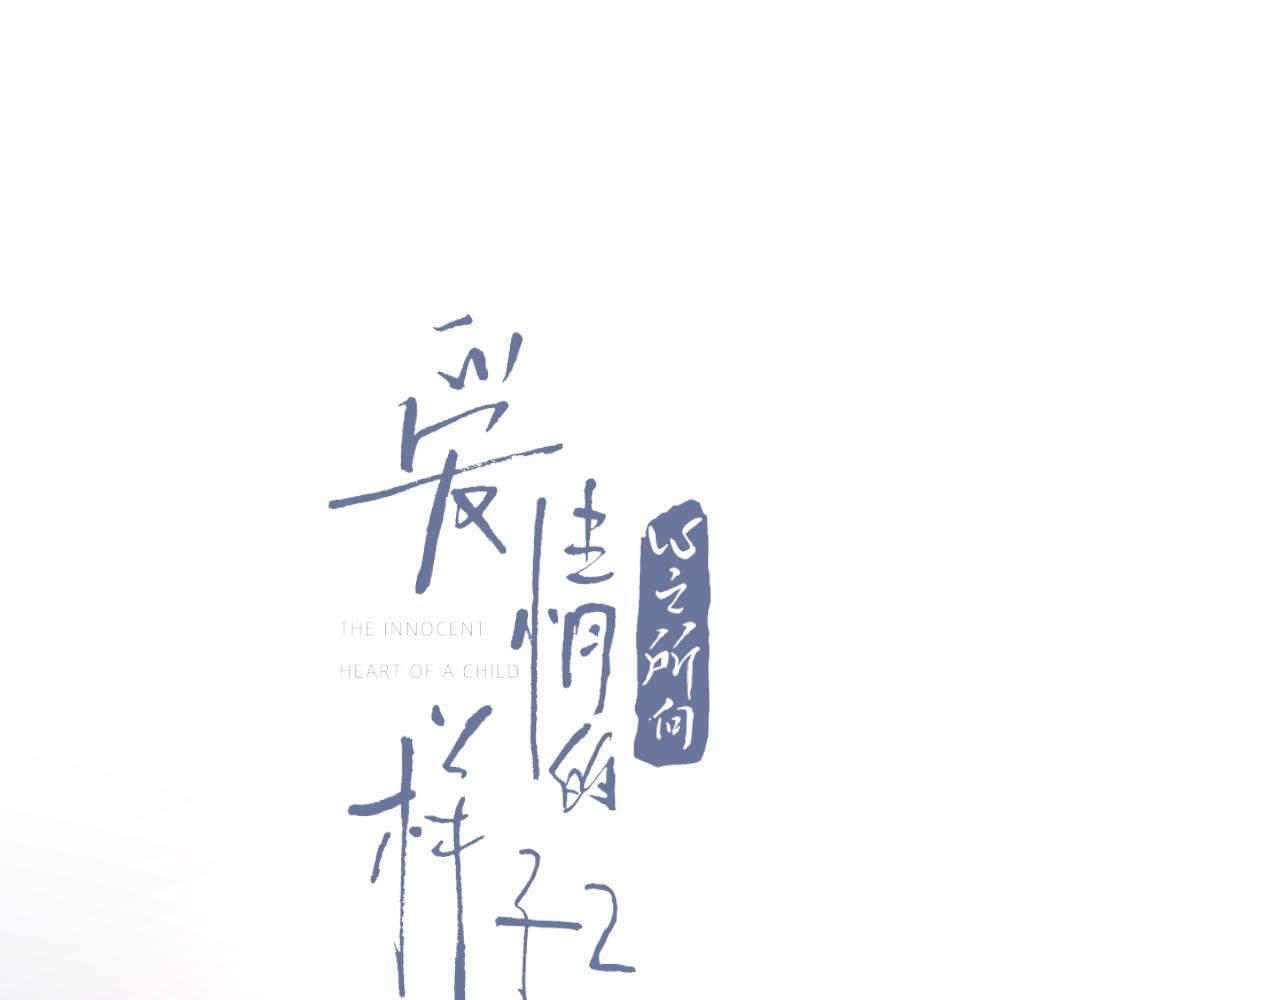 爱情的
样子2
心之所向
THE INNOCENT
HEART OF A CHILD